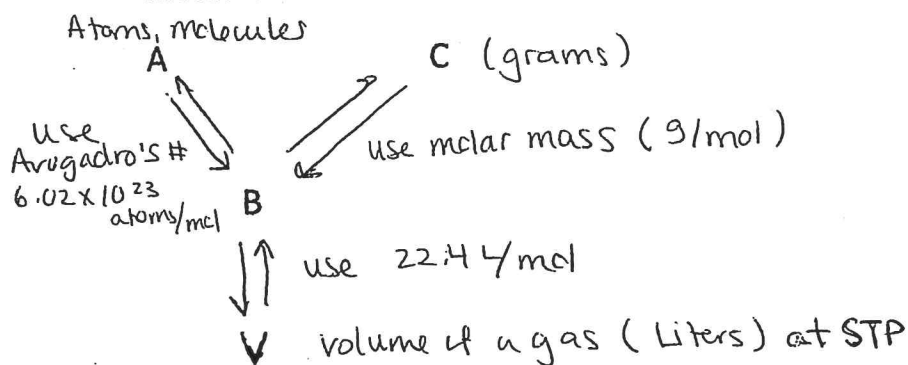 Atoms, molecules
A
C (grams)
use
Avogadro's #
6.02 x 10 23
atoms/mol
use molar mass (g/mol)
B
use 22.4 L/mol
V volume of a gas (Liters) at STP